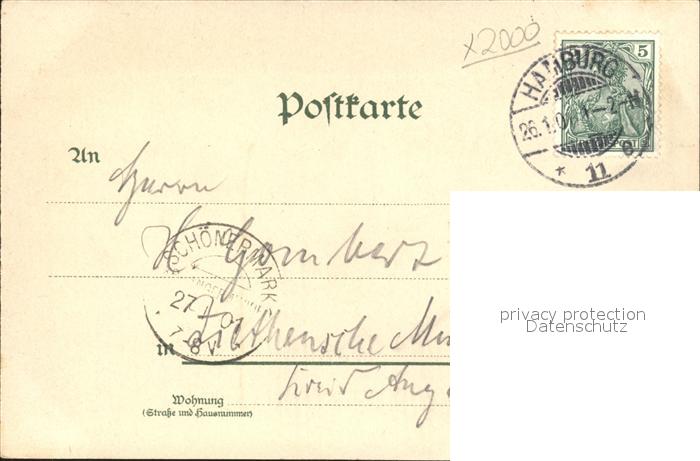 x2000
5
HAMBURG
26.1.0
1-2-N
* 11
Postkarte
An
Herrn
H. Gombert
SCHÖNERMARK
27 1 0
7-8V
Ziethensche
in
Kreis Ang
Wohnung
(Straße und Hausnummer)
privacy protection
Datenschutz